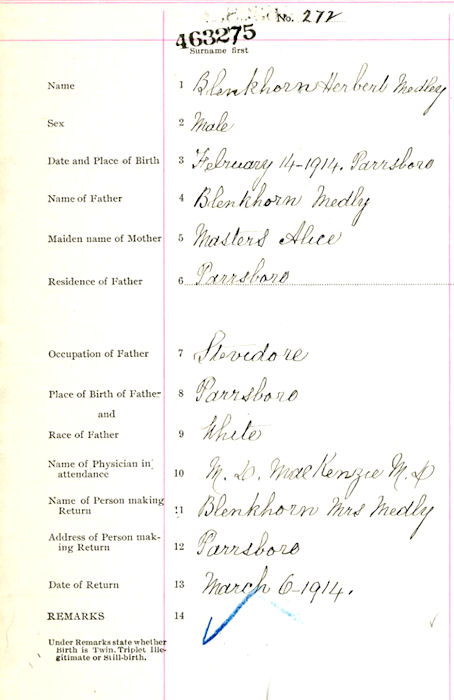 No. 272
463275
Surname first
Name 1 Blenkhorn Herbert Medley
Sex 2 Male
Date and Place of Birth 3 February 14-1914. Parrsboro
Name of Father 4 Blenkhorn Medly
Maiden name of Mother 5 Masters Alice
Residence of Father 6 Parrsboro
Occupation of Father 7 Stevidore
Place of Birth of Father 8 Parrsboro
and
Race of Father 9 White
Name of Physician in
attendance 10 M. D. MacKenzie M. D
Name of Person making
Return 11 Blenkhorn Mrs Medly
Address of Person mak-
ing Return 12 Parrsboro
Date of Return 13 March 6-1914.
REMARKS 14
Under Remarks state whether
Birth is Twin, Triplet Ille-
gitimate or Still-birth.